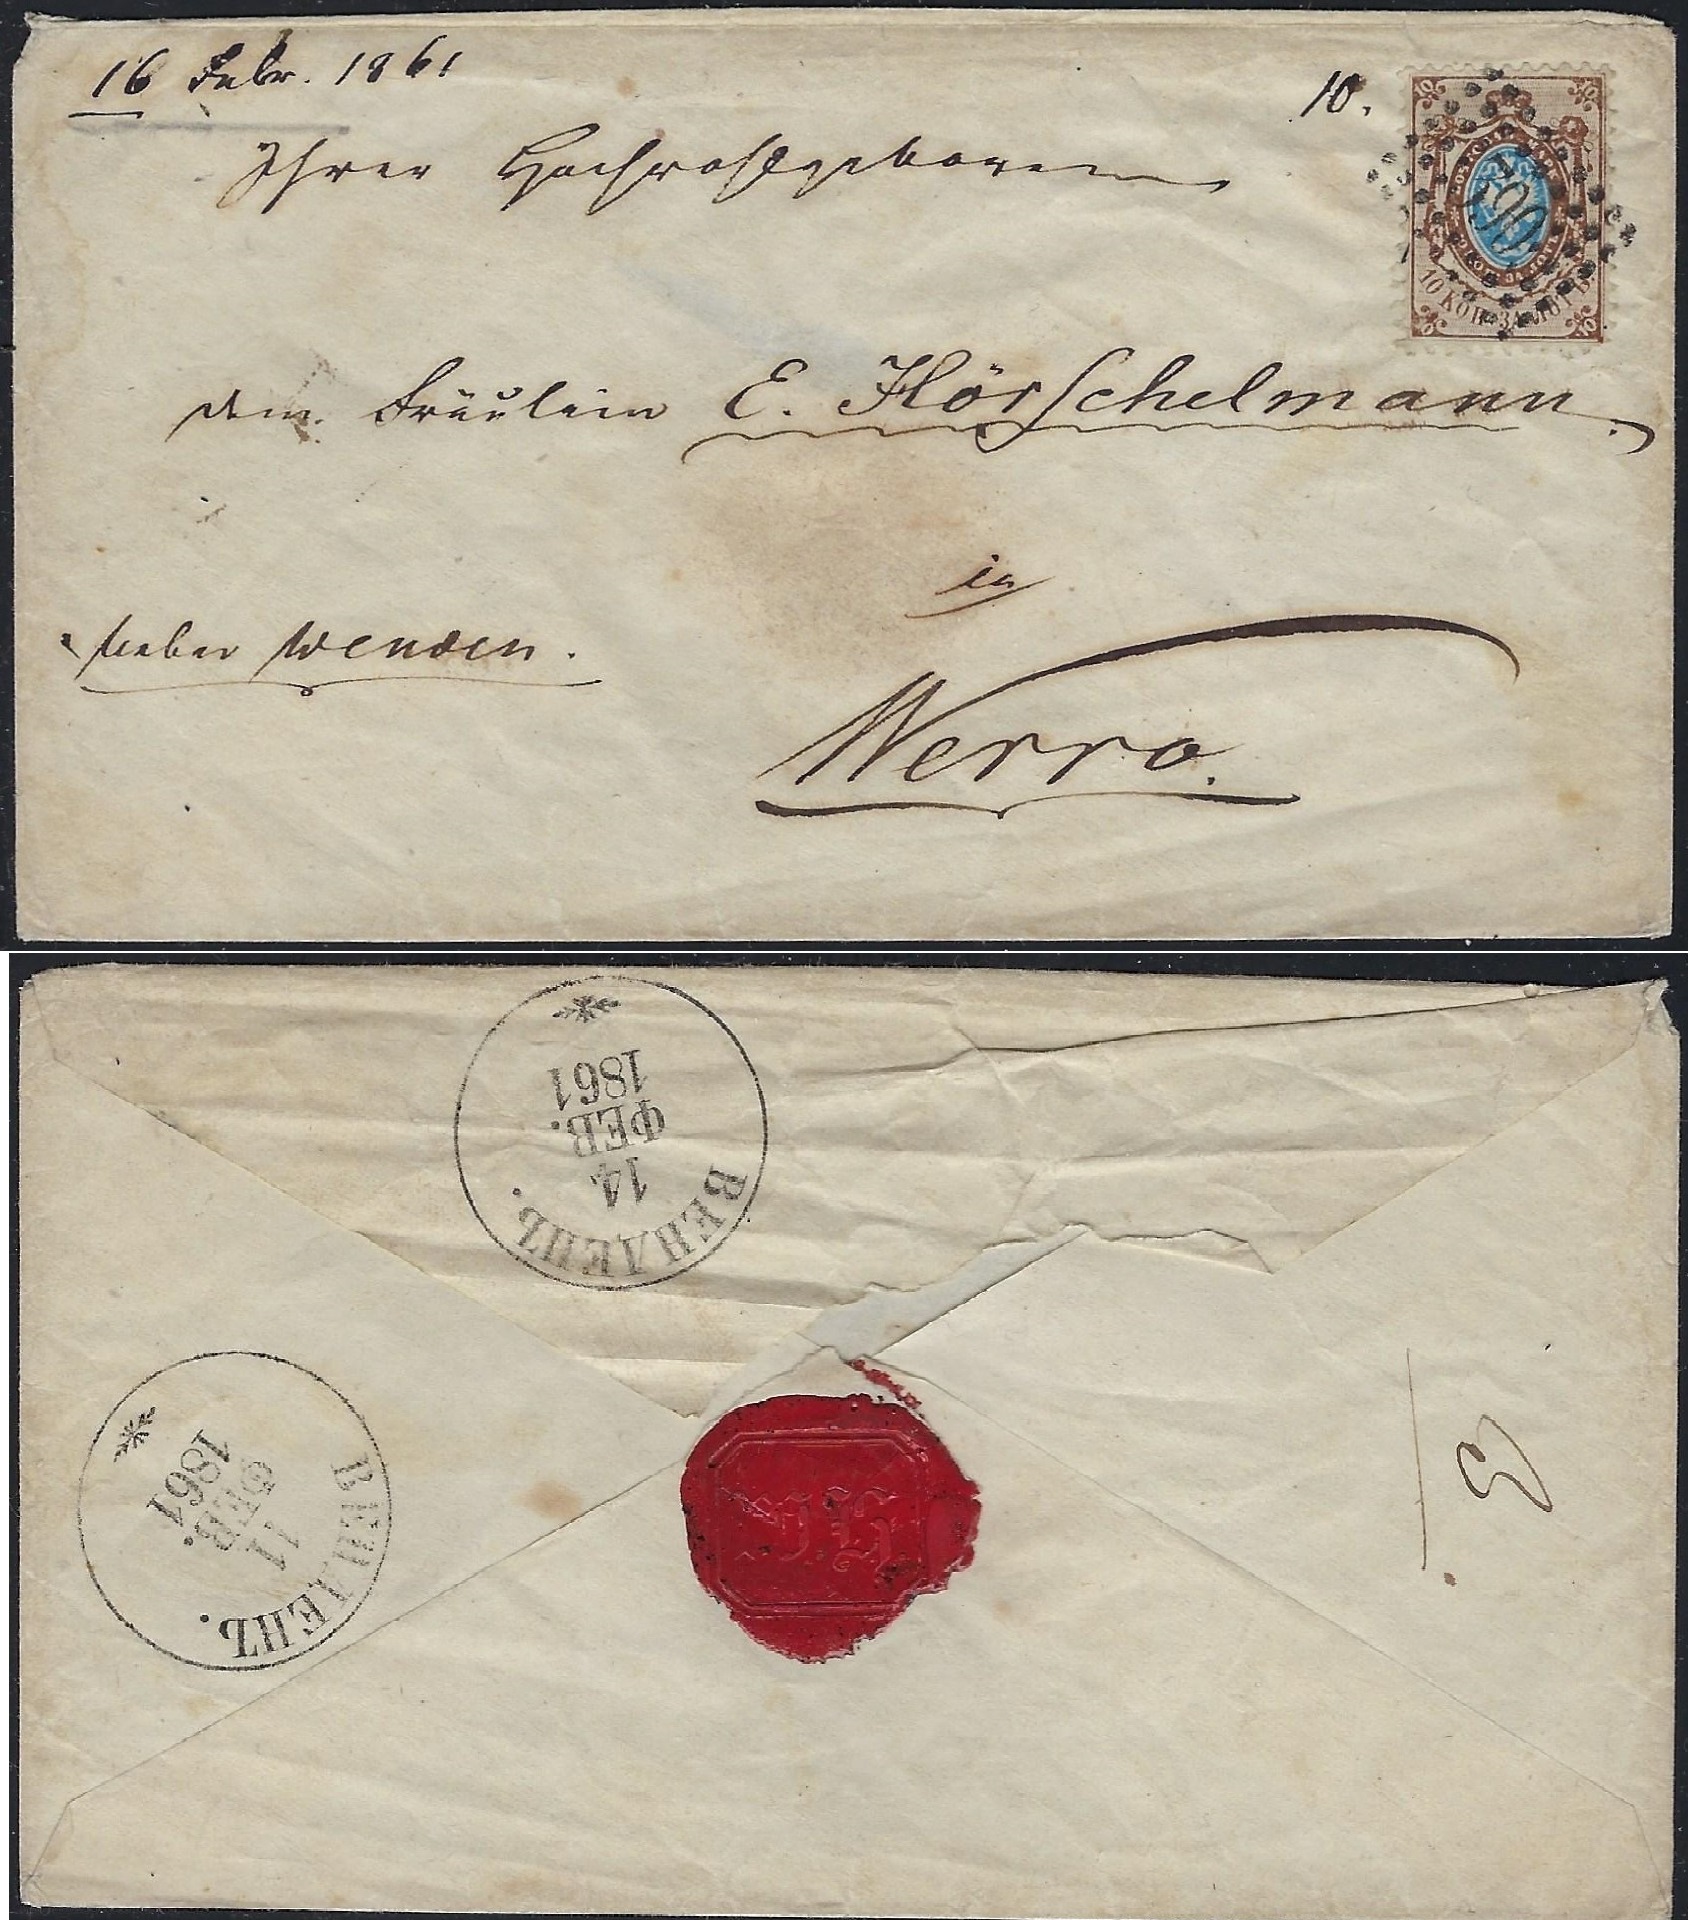 16 Febr. 1861
10.
Ihrer Hochwohlgeboren
dem Fräulein E. Hörschelmann.
in
ueber Wenden.
Werro.
10 КОП. ЗА ЛОТЪ.
ВЕНДЕНЪ.
14
ФЕВ.
1861
ВЕНДЕНЪ.
11
ФЕВ.
1861